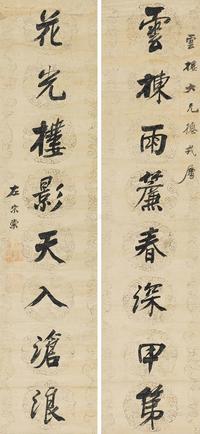 雲樵大兄總戎屬
雲棟雨簾春深甲第
花光樓影天入滄浪
左宗棠